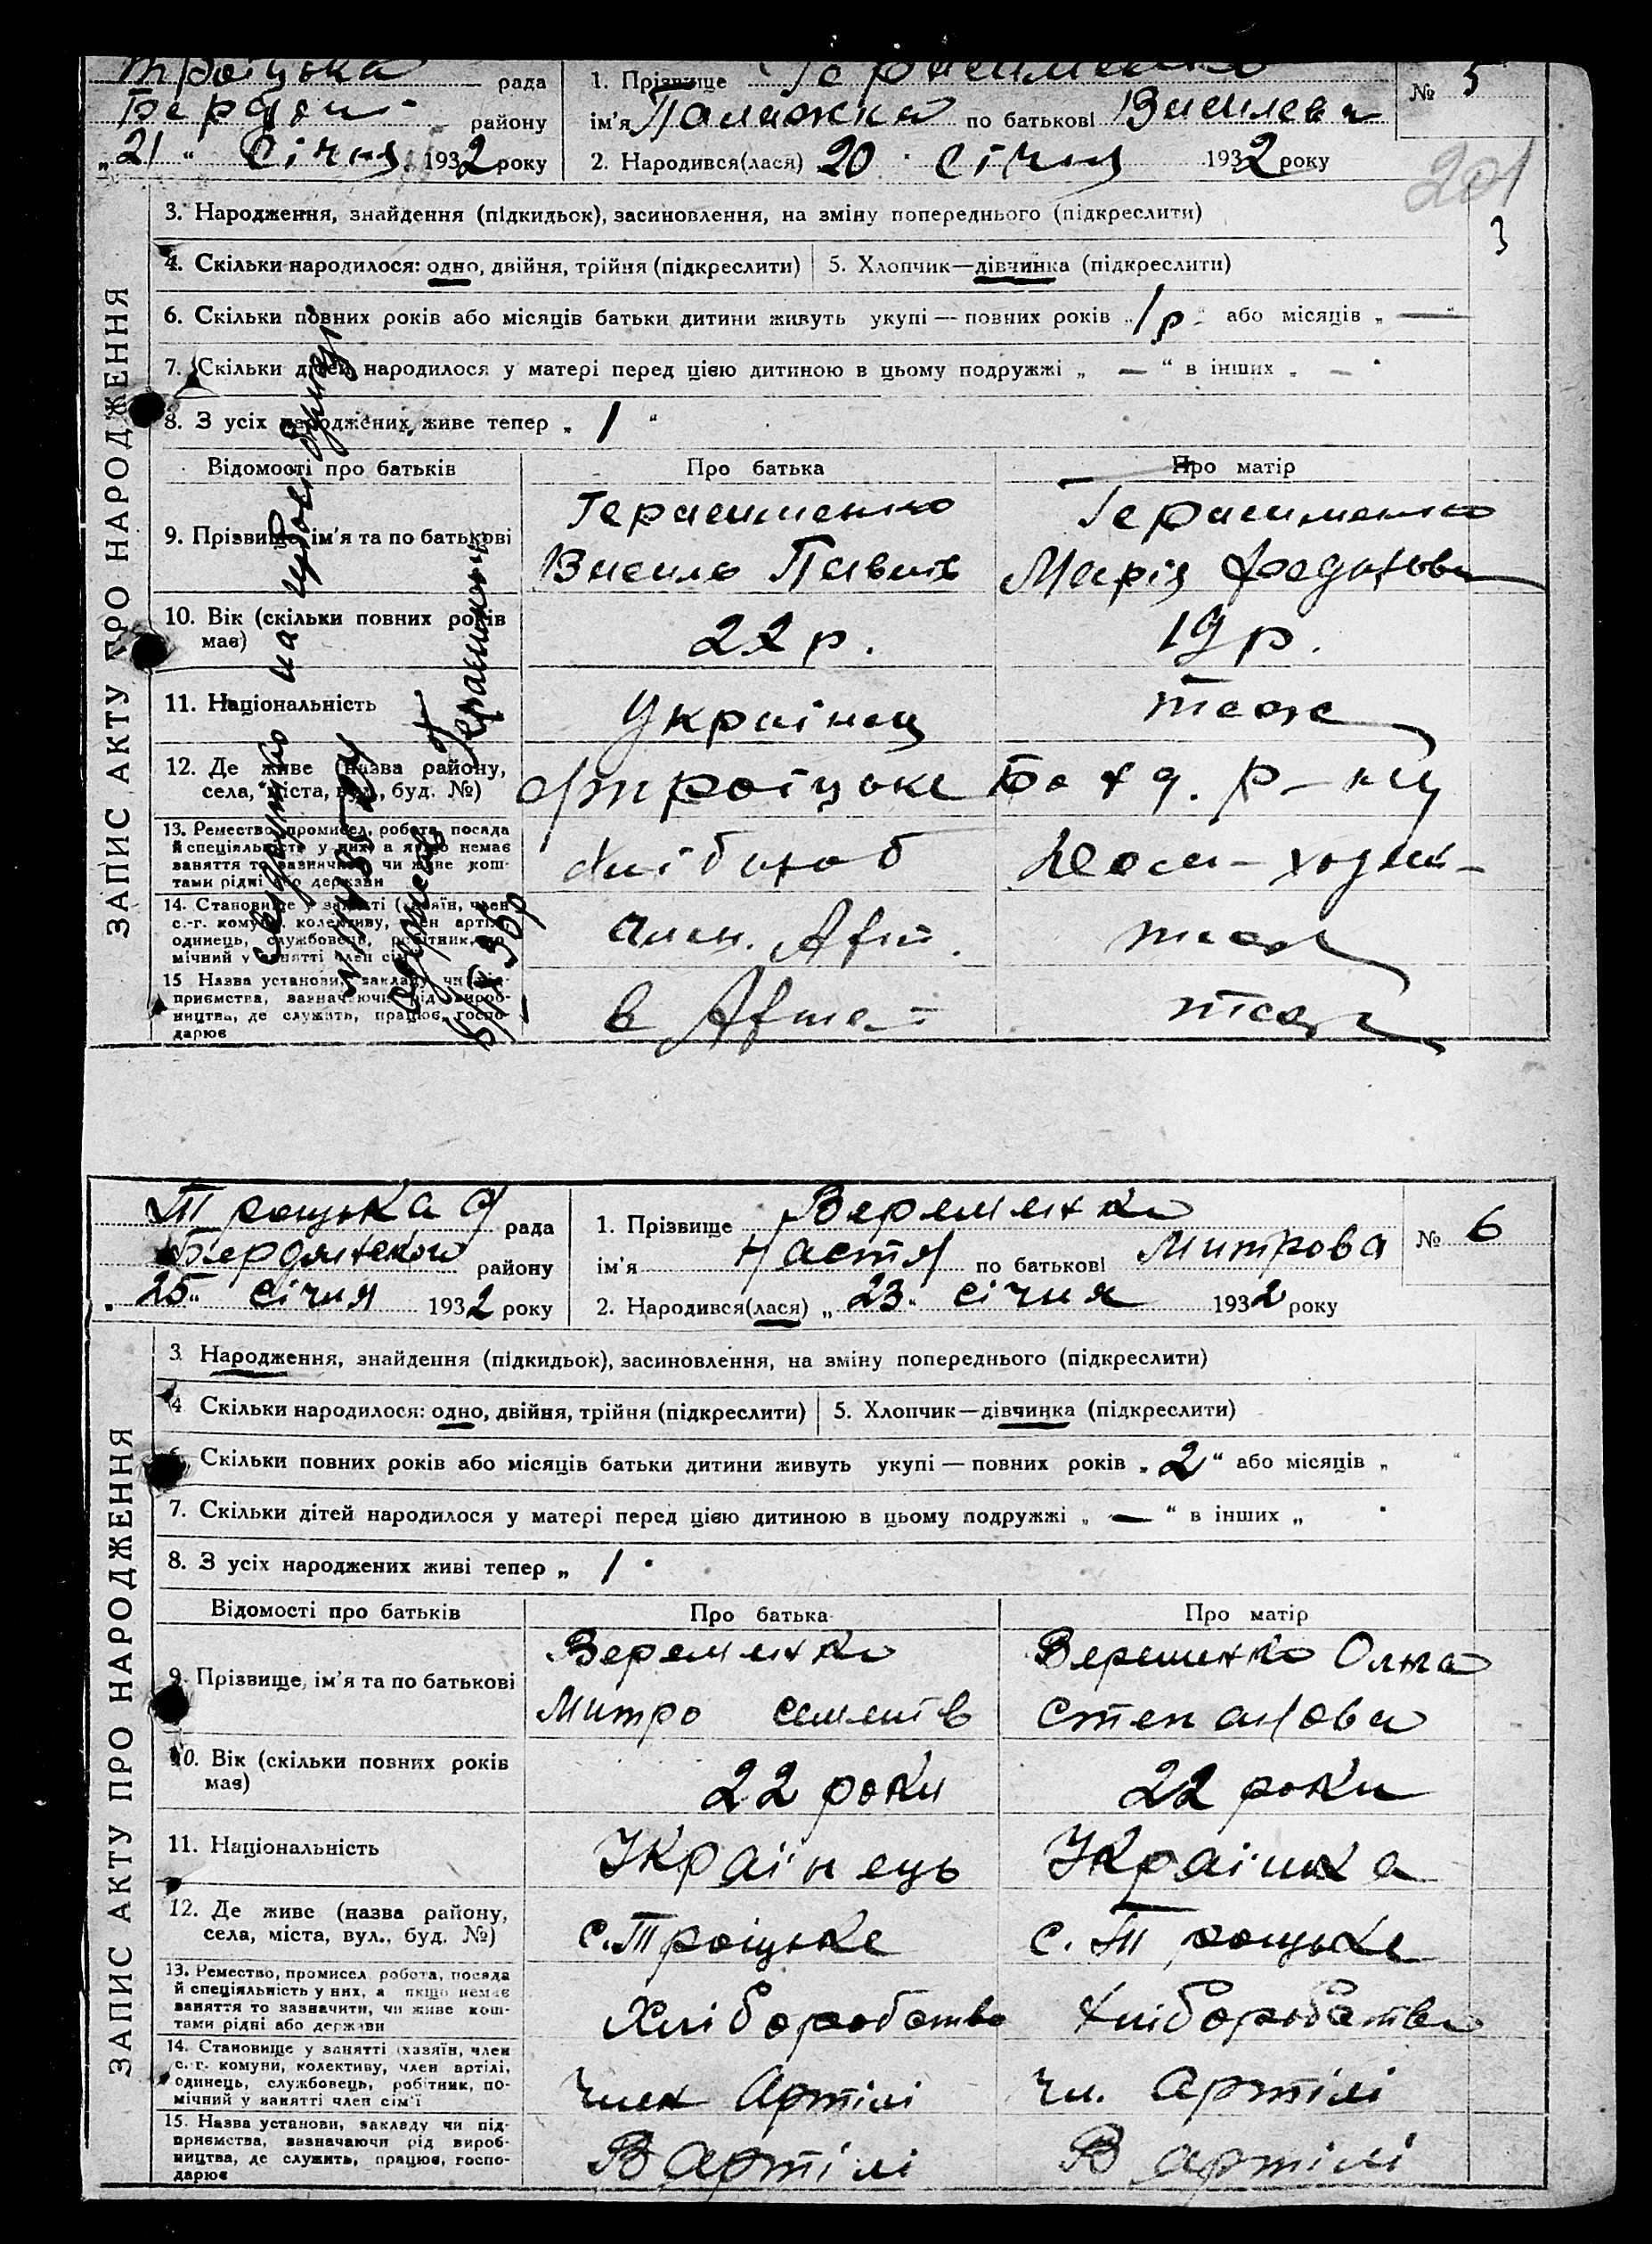 Троіцька рада
Бердян- району
„21“ Січня 1932 року
1. Прізвище Герасименко
ім'я Палажка по батькові Василева
2. Народився(лася) 20 січня 1932 року
№ 5
201
3
ЗАПИС АКТУ ПРО НАРОДЖЕННЯ
3. Народження, знайдення (підкидьок), засиновлення, на зміну попереднього (підкреслити)
4. Скільки народилося: одно, двійня, трійня (підкреслити)
5. Хлопчик—дівчинка (підкреслити)
6. Скільки повних років або місяців батьки дитини живуть укупі — повних років „1 р“ або місяців „—“
7. Скільки дітей народилося у матері перед цією дитиною в цьому подружжі „—“ в інших „—“
8. З усіх народжених живе тепер „1“
Відомості про батьків Про батька Про матір
9. Прізвище, ім'я та по батькові
Герасименко
Васило Павлів
Герасименко
Марія
10. Вік (скільки повних років
має)
22 р. 19 р.
11. Національність Українец теж
12. Де живе (назва району,
села, міста, вул., буд. №)
Троіцьке р-ну
13. Ремество, промисел, робота, посада
й спеціяльність у них, а якщо немає
заняття то зазначити, чи живе кош-
тами рідні або держави
14. Становище у занятті (хазяїн, член
с.-г. комуни, колективу, член артілі,
одинець, службовець, робітник, по-
мічний у занятті член сім'ї
член. Арт. теж
15 Назва установи, закладу чи під-
приємства, зазначаючи рід вироб-
ництва, де служить, працює, госпо-
дарює
в Артелі теж
на
Герасименко
Троцька рада
Бердянського району
„25“ січня 1932 року
1. Прізвище Веременко
ім'я Настя по батькові Митрова
2. Народився(лася) „23“ січня 1932 року
№ 6
ЗАПИС АКТУ ПРО НАРОДЖЕННЯ
3 Народження, знайдення (підкидьок), засиновлення, на зміну попереднього (підкреслити)
4 Скільки народилося: одно, двійня, трійня (підкреслити)
5. Хлопчик—дівчинка (підкреслити)
6. Скільки повних років або місяців батьки дитини живуть укупі — повних років „2“ або місяців „ “
7. Скільки дітей народилося у матері перед цією дитиною в цьому подружжі „—“ в інших „
8. З усіх народжених живі тепер „1“
Відомості про батьків Про батька Про матір
9. Прізвище, ім'я та по батькові
Веременко
Митро Семенів
Веременко Ольга
Степанова
10. Вік (скільки повних років
має)
22 роки 22 роки
11. Національність Українець Українка
12. Де живе (назва району,
села, міста, вул., буд. №)
с. Троіцьке с. Троцьке
13. Ремество, промисел робота, посада
й спеціяльність у них, а якщо немає
заняття то зазначити, чи живе кош-
тами рідні або держави
Хліборобство Хліборобство
14. Становище у занятті (хазяїн, член
с.-г. комуни, колективу, член артілі,
одинець, службовець, робітник, по-
мічний у занятті член сім'ї
Член Артілі Чл. Артілі
15. Назва установи, закладу чи під-
приємства, зазначаючи рід вироб-
ництва, де служить, працює, госпо-
дарює
В Артілі В Артілі